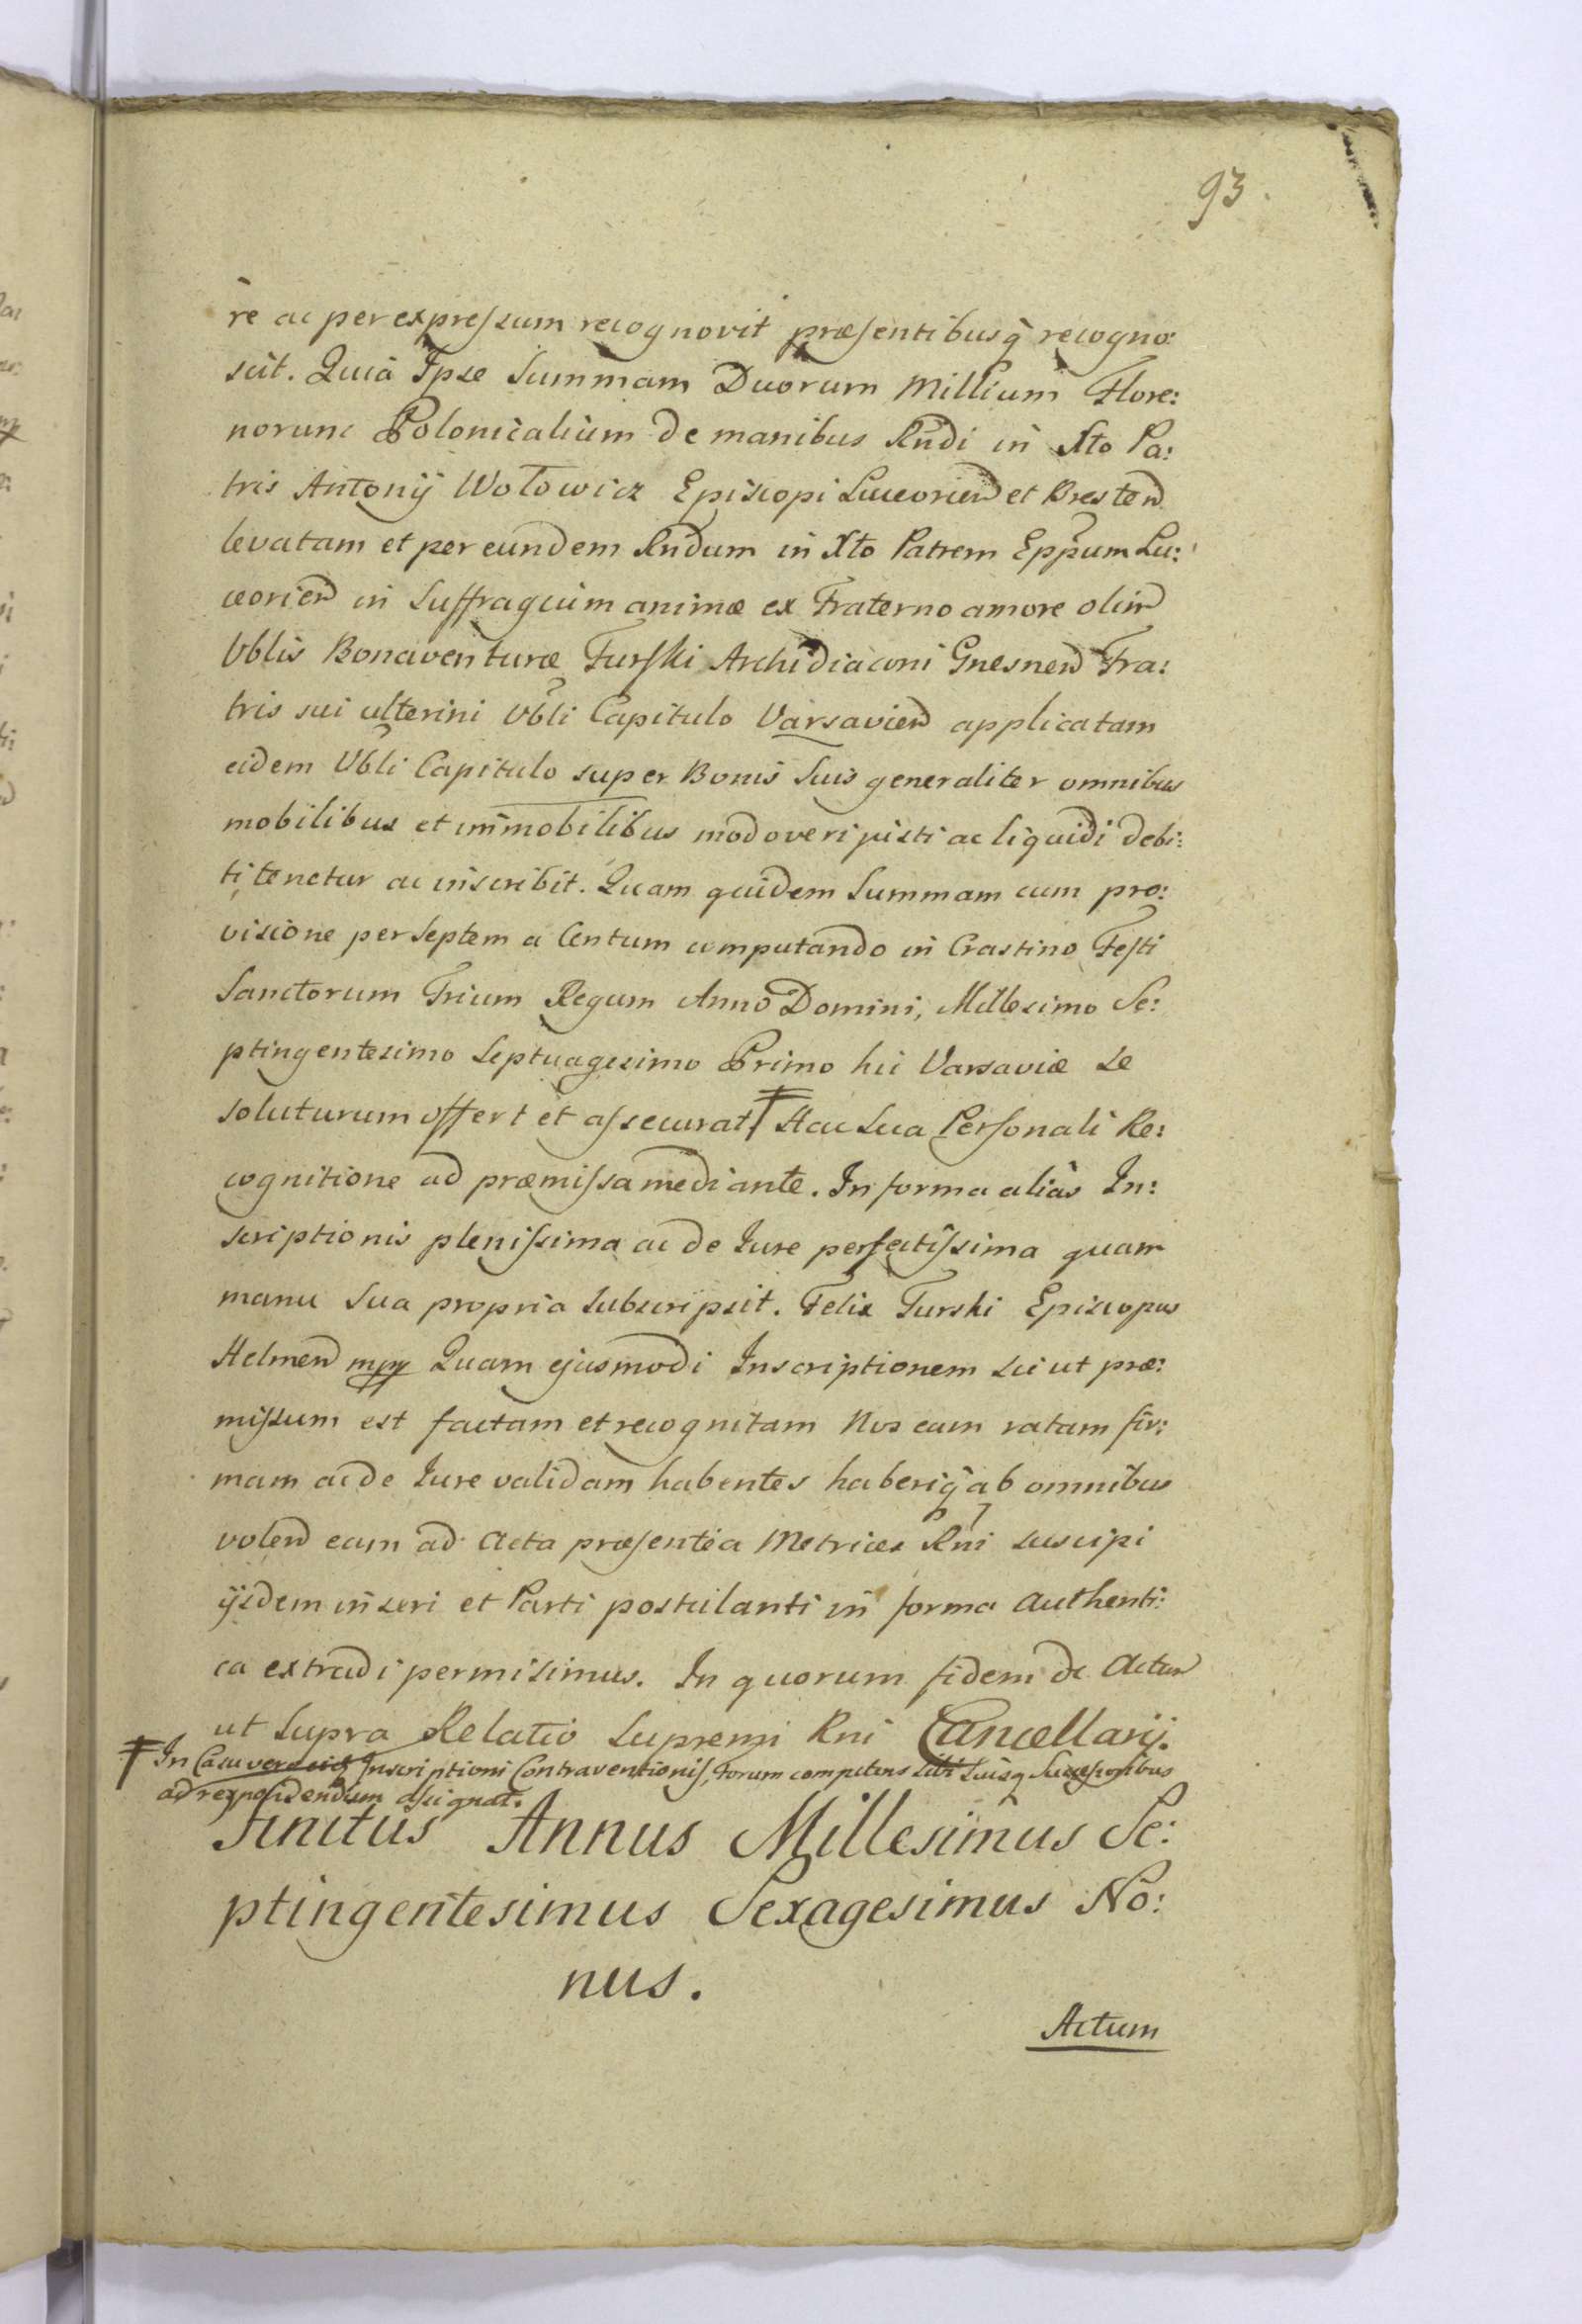 93.
re ac per expressum recognovit præsentibusq̀ recogno:
scit. Quià Ipse Summam Duorum Millium Flore:
norum Polonicalium de manibus Rndi in Xto Pa:
tris Antonij Wołowicz Episcopi Luceorien et Bresten
levatam et per eundem Rndum in Xto Patrem Eppum Lu:
ceorien in Suffragium animæ ex Fraterno amore olim
Vblis Bonaventuræ Turski Archidiaconi Gnesnen Fra:
tris sui ulterini Vbli Capitulo Varsavien applicatam
eidem Vbli Capitulo super Bonis Suis generaliter omnibus
mobilibus et immobilibus modo veri justi ac liquidi debi:
ti tenetur ac inscribit. Quam quidem Summam cum pro:
visione per Septem a Centum computando in Crastino Festi
Sanctorum Trium Regum Anno Domini, Millesimo Se:
ptingentesimo Septuagesimo Primo hic Varsaviæ se
soluturum offert et assecurat ‡ Hac Sua Personali Re:
cognitione ad præmissa mediante. In forma aliàs In:
scriptionis plenissima ac de Jure perfectissima quam
manu Sua propria Subscripsit. Felix Turski Episcopus
Helmen mpp Quam ejusmodi Inscriptionem sic ut præ:
missum est factam et recognitam Nos eam ratam fir:
mam ac de Jure validam habentes haberiq̀ ab omnibus
volen eam ad Acta præsentia Metrices Rni suscipi
ijsdem inseri et Parti postulanti in forma Authenti:
ca extradi permisimus. In quorum fidem dc Actum
ut Supra Relatio Supremi Rni Cancellarij.
‡ In Casu vero Inscriptioni Contraventionis, Forum competens Sibi Suisq Successoribus
ad respondendum assignat.
Finitus Annus Millesimus Se:
ptingentesimus Sexagesimus No:
nus.
Actum